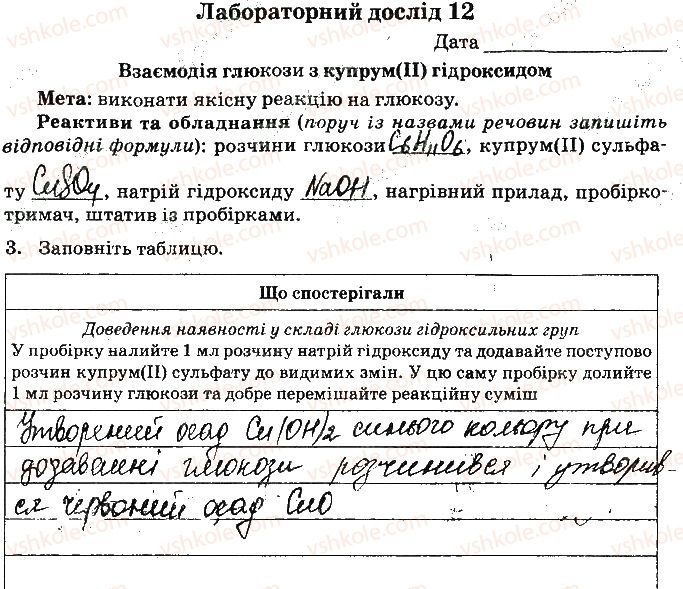 Лабораторний дослід 12
Дата
Взаємодія глюкози з купрум(II) гідроксидом
Мета: виконати якісну реакцію на глюкозу.
Реактиви та обладнання (поруч із назвами речовин запишіть
відповідні формули): розчини глюкози C6H11O6, купрум(II) сульфа-
ту CuSO4, натрій гідроксиду NaOH, нагрівний прилад, пробірко-
тримач, штатив із пробірками.
3. Заповніть таблицю.
Що спостерігали
Доведення наявності у складі глюкози гідроксильних груп
У пробірку налийте 1 мл розчину натрій гідроксиду та додавайте поступово
розчин купрум(II) сульфату до видимих змін. У цю саму пробірку долийте
1 мл розчину глюкози та добре перемішайте реакційну суміш
Утворений осад Cu(OH)2 синього кольору при
дозавалені глюкози розчинився і утворив-
ся червоний осад CuO